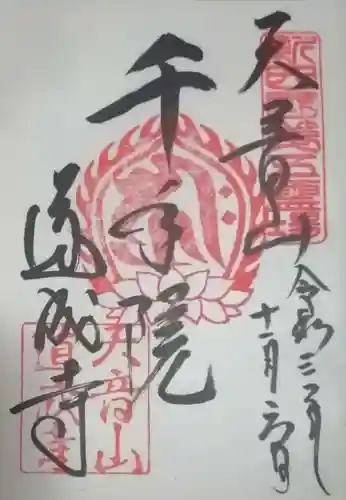 天音山
千手院
道成寺
令和三年
十二月六日
天音山
道成寺